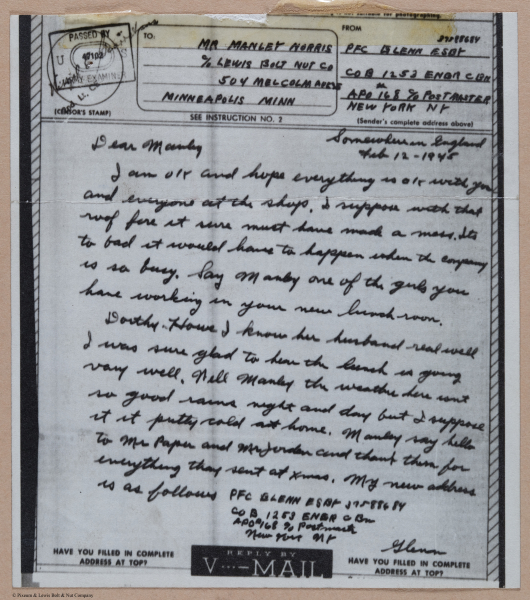 PASSED BY
U
47103
ARMY EXAMINER
(CENSOR'S STAMP)
TO:
MR MANLEY NORRIS
% LEWIS BOLT NUT CO
504 MELCOLM AVE SE
MINNEAPOLIS MINN
SEE INSTRUCTION NO. 2
for photographing.
FROM
37588684
PFC GLENN ESBY
CO B 1253 ENGR C BN
APO 168 % POSTMASTER
NEW YORK NY
(Sender's complete address above)
Somewhere in England
Feb 12 - 1945
Dear Manley
I am ok and hope everything is ok with you
and everyone at the shop. I suppose with that
roof fire it sure must have made a mess. Its
to bad it would have to happen when the company
is so busy. Say Manley one of the girls you
have working in your new lunch room.
Dorthy Howe I know her husband real well
I was sure glad to hear the lunch is going
vary well. Well Manley the weather here isnt
so good rains night and day but I suppose
it it putty cold at home. Manley say hello
to Mr Paper and Mr Jorden and thank them for
everything they sent at xmas. My new address
is as follows PFC GLENN ESBY 37588684
CO B 1253 ENGR C Bn
APO 168 % Postmaster
New York NY
Glenn
HAVE YOU FILLED IN COMPLETE
ADDRESS AT TOP?
REPLY BY
V···—MAIL
HAVE YOU FILLED IN COMPLETE
ADDRESS AT TOP?
© Pioneer & Lewis Bolt & Nut Company